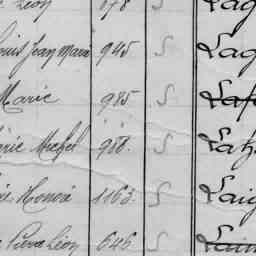 Léon 178 Lag
ouis Jean Marie 945 S Lag
Marie 985. S Laf
rie Michel 988. S Lah
Honoré 1163. S Laig
Pierre Léon 646 S Lain